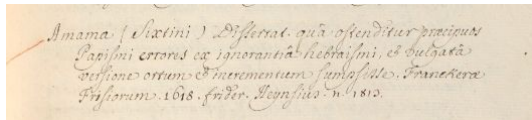 Amama (Sixtini) Dissertat. quâ ostenditur præcipuos
Papismi errores ex ignorantiâ hebraismi, et vulgatâ
versione ortum et incrementum sumpsisse. Franekeræ
Frisiorum. 1618. frider. Heynsius. n. 1813.